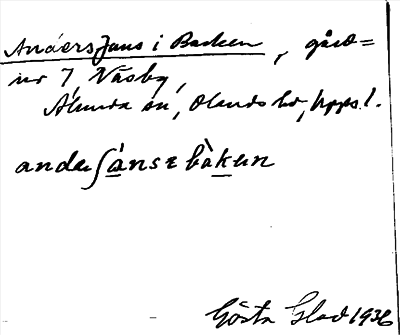 Anders Jans i Backen, gård=
nr 7, Näsby,
Ålunda sn, Olands hd, Upps l.
ande ʃànsɛ bàkɛn
Gösta Glad 1936